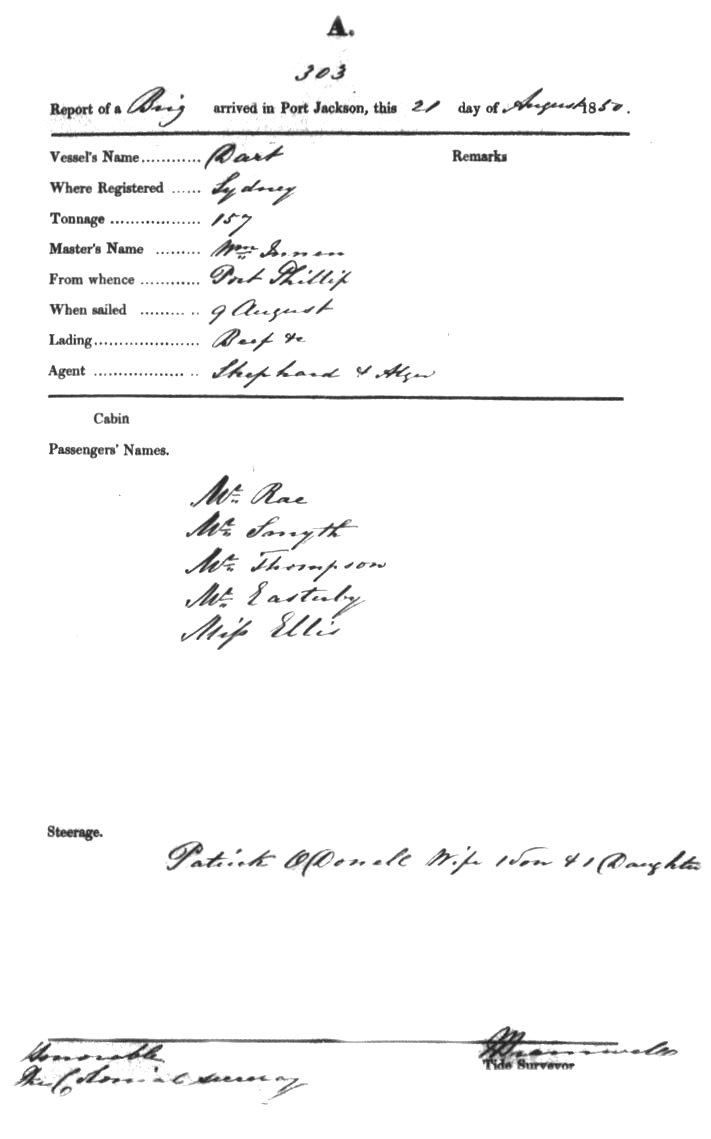 A.
303
Report of a Brig arrived in Port Jackson, this 21 day of August 1850.
Vessel's Name............ Dart Remarks
Where Registered ...... Sydney
Tonnage .................. 157
Master's Name ......... Wm
From whence ............ Port Phillip
When sailed ......... .. 9 August
Lading..................... Beef &c
Agent .................. .. Shephard & Alger
Cabin
Passengers' Names.
Mr. Rae
Mr. Smyth
Mr. Thompson
Mr. Easterby
Miss Ellis
Steerage.
Patrick O'Donell Wife 1 Son & 1 Daughter
Honorable
The Colonial Secretary
Tide Surveyor